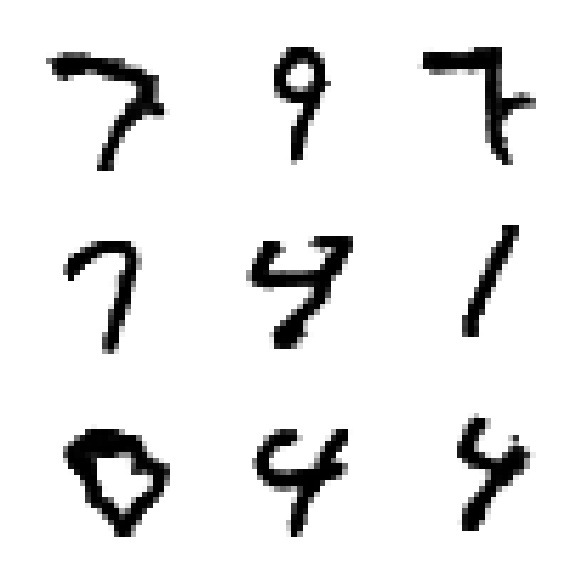 7 9 7
7 4 1
0 4 4